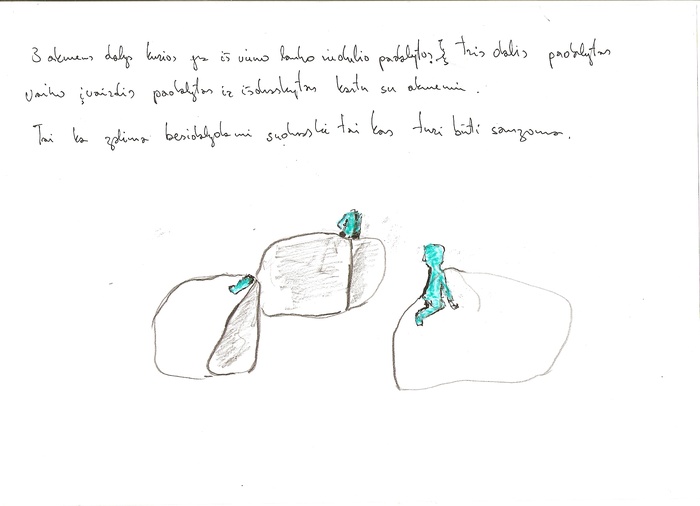 3 akmens dalys kurios yra iš vieno lauko riedulio padalytos į tris dalis padalytas
vaiko įvaizdis padalytas ir išdėstytas kartu su akmenimi.
Tai ką galima besidalydami sudarkė tai kas turi būti saugoma.